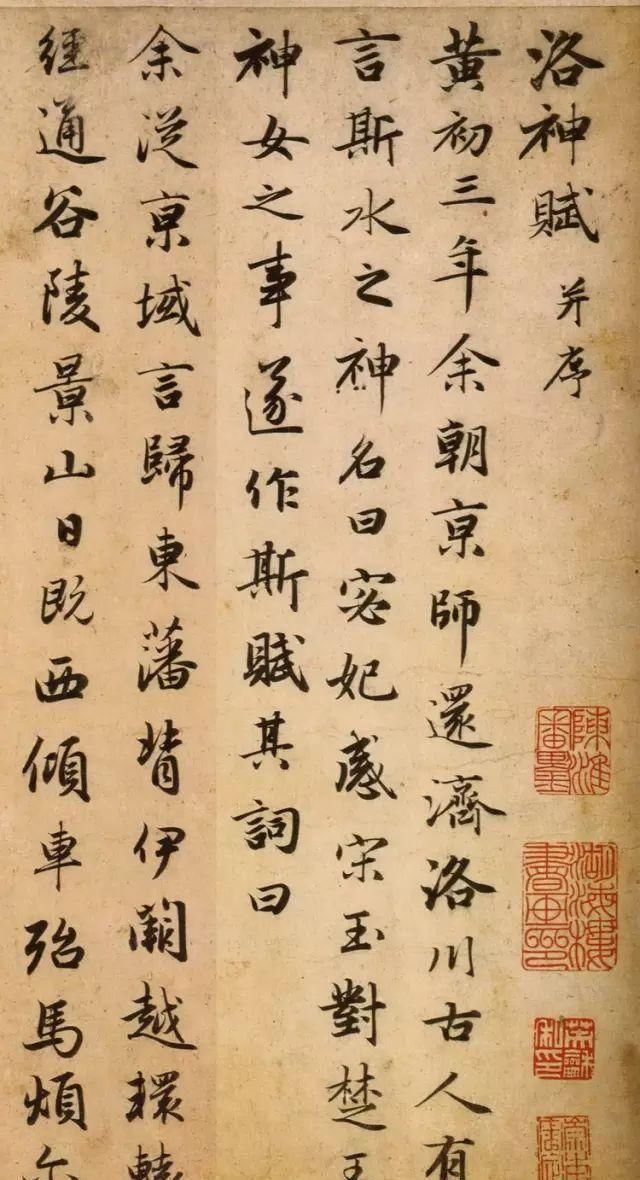 洛神賦 并序
黄初三年余朝亰師還濟洛川古人有
言斯水之神名曰宓妃感宋玉對楚王
神女之事遂作斯賦其詞曰
余従亰域言歸東藩背伊闕越轘轅
經通谷陵景山日既西傾車殆馬煩